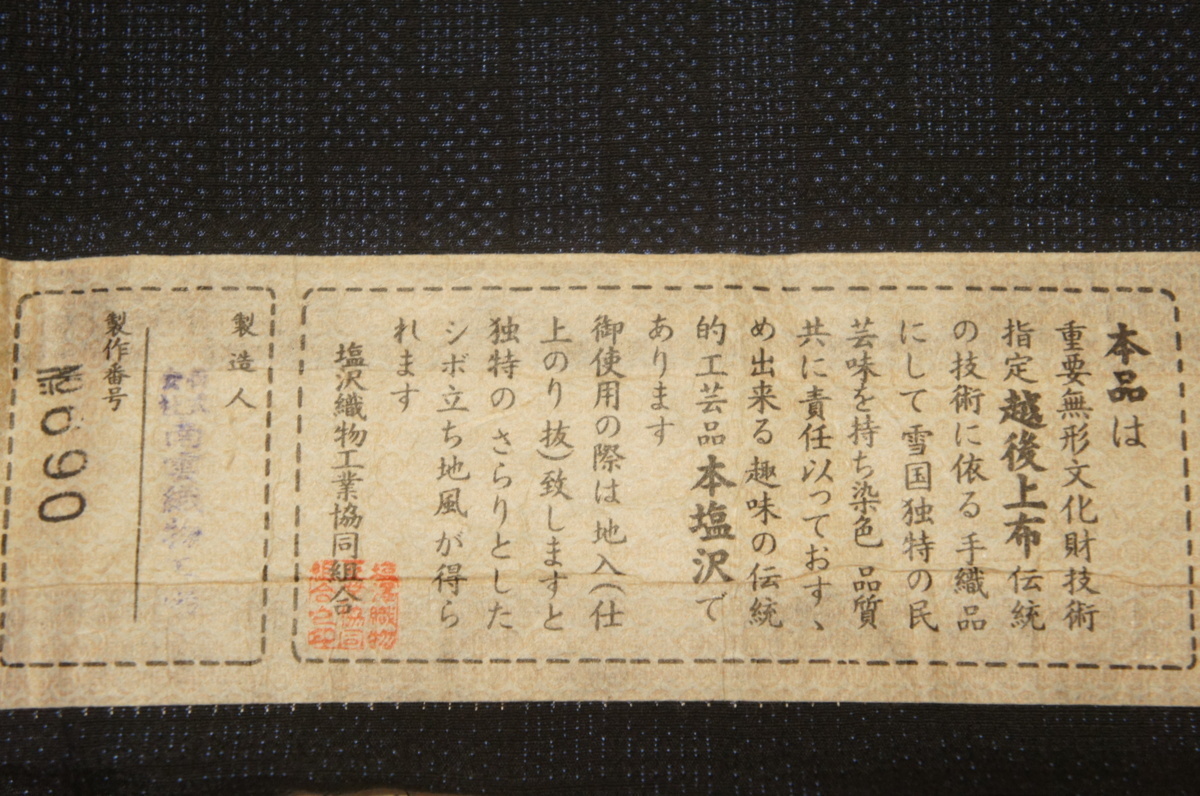 本品は
重要無形文化財技術
指定越後上布伝統
の技術に依る手織品
にして雪国独特の民
芸味を持ち染色品質
共に責任以っておすゝ
め出来る趣味の伝統
的工芸品本塩沢で
あります
御使用の際は地入(仕
上のり抜)致しますと
独特のさらりとした
シボ立ち地風が得ら
れます
塩沢織物工業協同組合
製造人
南雲織物工場
製作番号
0690